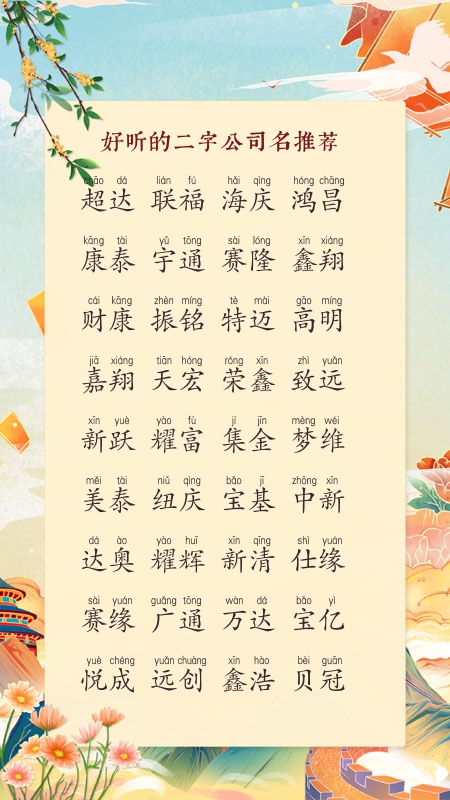 好听的二字公司名推荐
chāo dá lián fú hǎi qìng hóng chāng
超达 联福 海庆 鸿昌
kāng tài yǔ tōng sài lóng xīn xiáng
康泰 宇通 赛隆 鑫翔
cái kāng zhèn míng tè mài gāo míng
财康 振铭 特迈 高明
jiā xiáng tiān hóng róng xīn zhì yuǎn
嘉翔 天宏 荣鑫 致远
xīn yuè yào fù jí jīn mèng wéi
新跃 耀富 集金 梦维
měi tài niǔ qìng bǎo jī zhōng xīn
美泰 纽庆 宝基 中新
dá ào yào huī xīn qīng shì yuán
达奥 耀辉 新清 仕缘
sài yuán guǎng tōng wàn dá bǎo yì
赛缘 广通 万达 宝亿
yuè chéng yuǎn chuàng xīn hào bèi guān
悦成 远创 鑫浩 贝冠